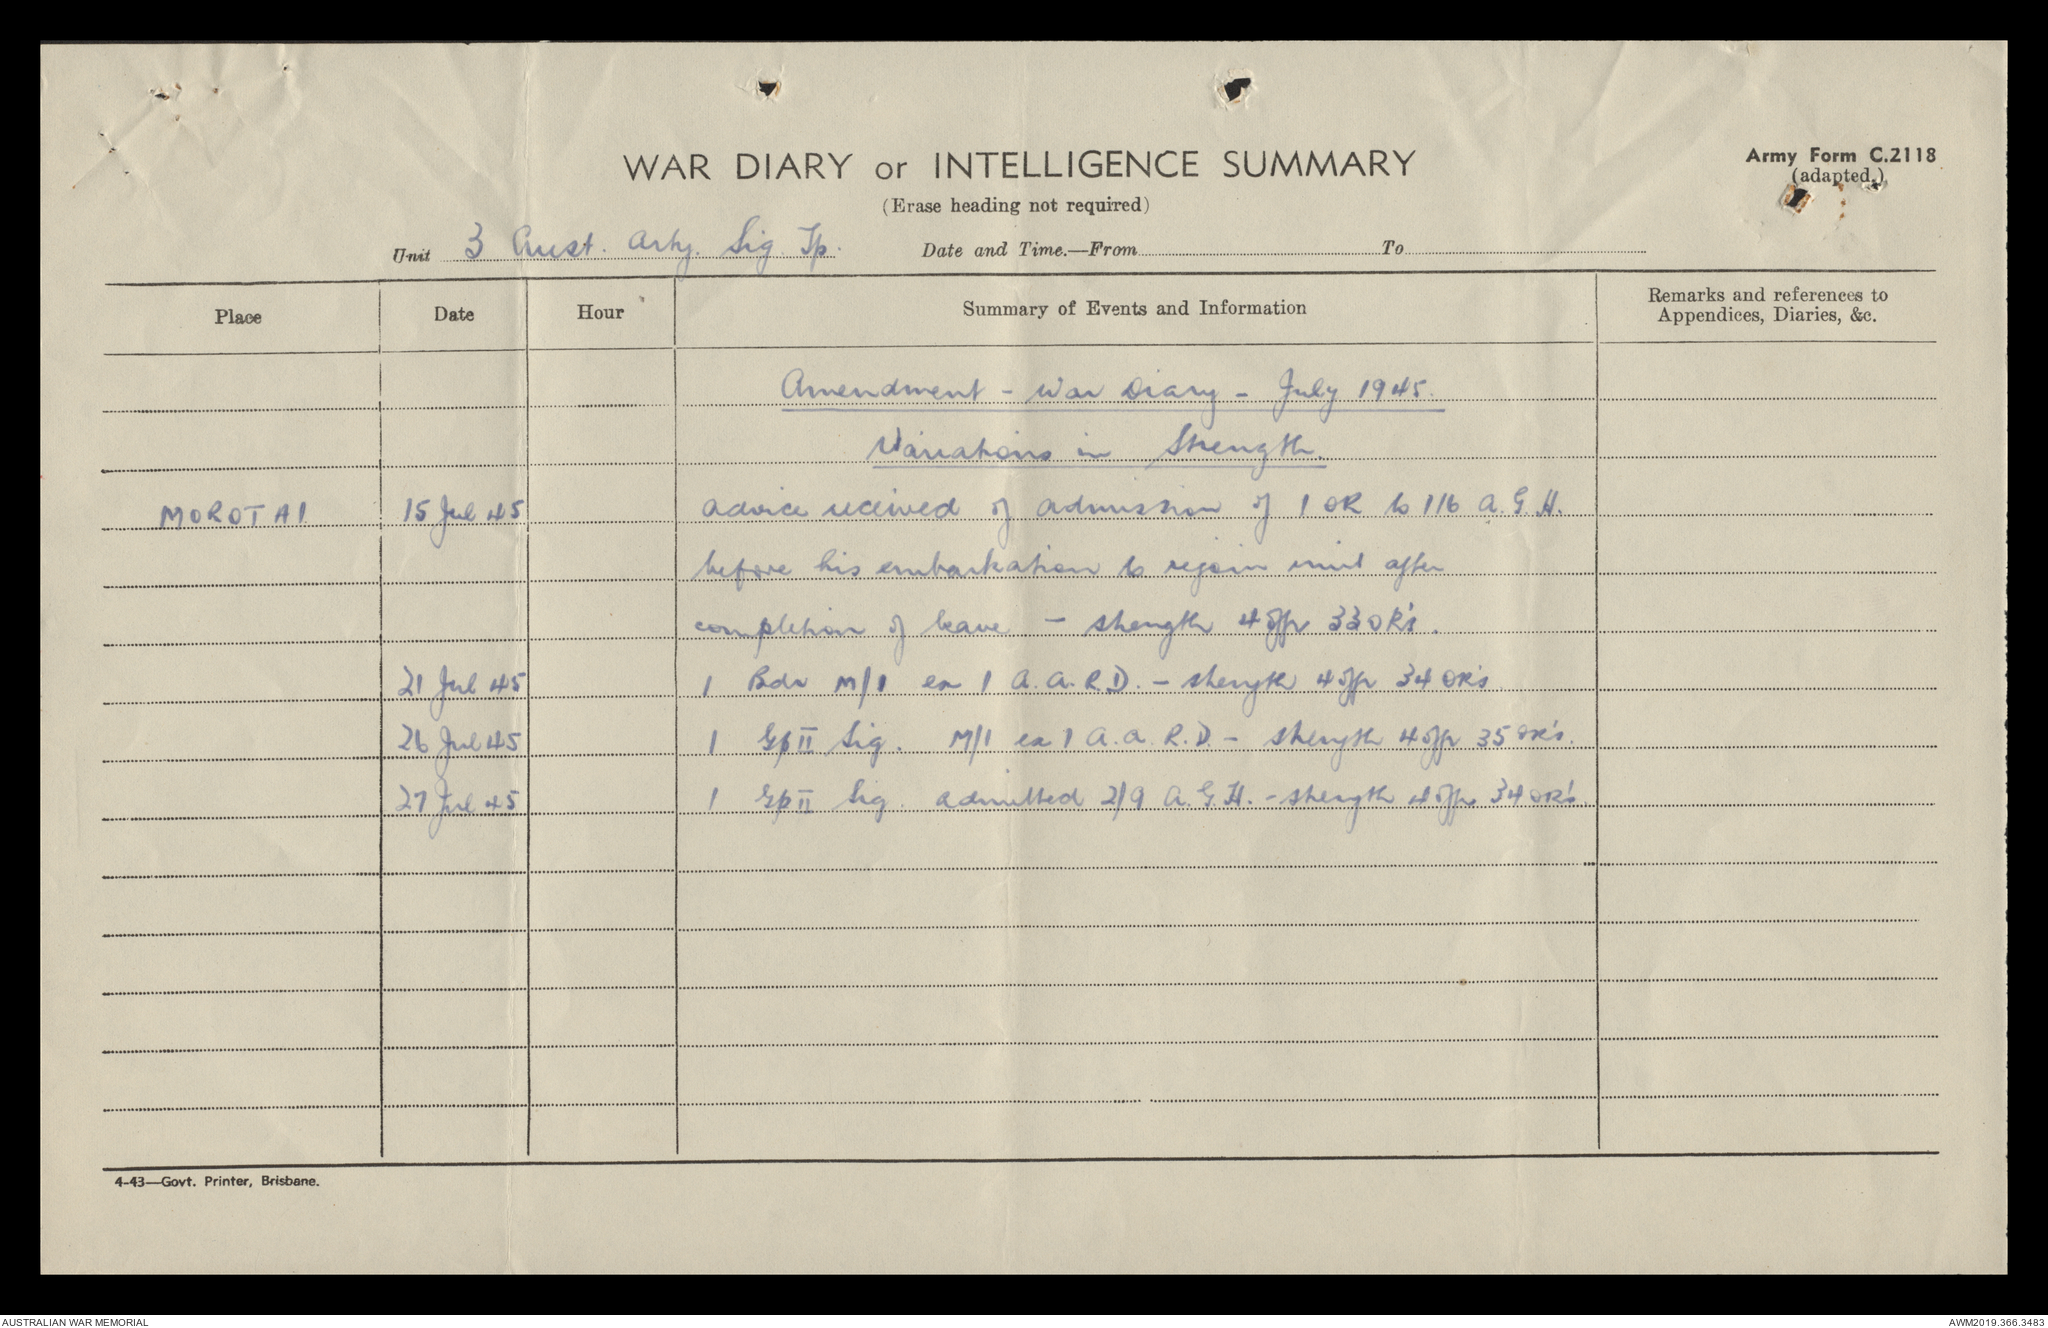 WAR DIARY or INTELLIGENCE SUMMARY
Army Form C.2118
(adapted.)
(Erase heading not required)
Unit 3 Aust. Arty. Sig Tp. Date and Time.—From To
Place Date Hour Summary of Events and Information Remarks and references to
Appendices, Diaries, &c.
Amendment - War Diary - July 1945.
Variations in Strength.
MOROTAI 15 Jul 45 advice received of admission of 1 OR to 116 A.G.H.
before his embarkation to rejoin unit after
completion of leave - strength 4 offr 33 OR's.
21 Jul 45 1 Bdr M/I ex 1 A.A.R.D. - strength 4 offr 34 OR's.
26 Jul 45 1 Gp II Sig. M/I ex 1 A.A.R.D. - strength 4 offr 35 OR's.
27 Jul 45 1 Gp II Sig admitted 2/9 A.G.H. - strength 4 offr 34 OR's.
4-43—Govt. Printer, Brisbane.
AUSTRALIAN WAR MEMORIAL AWM2019.366.3483